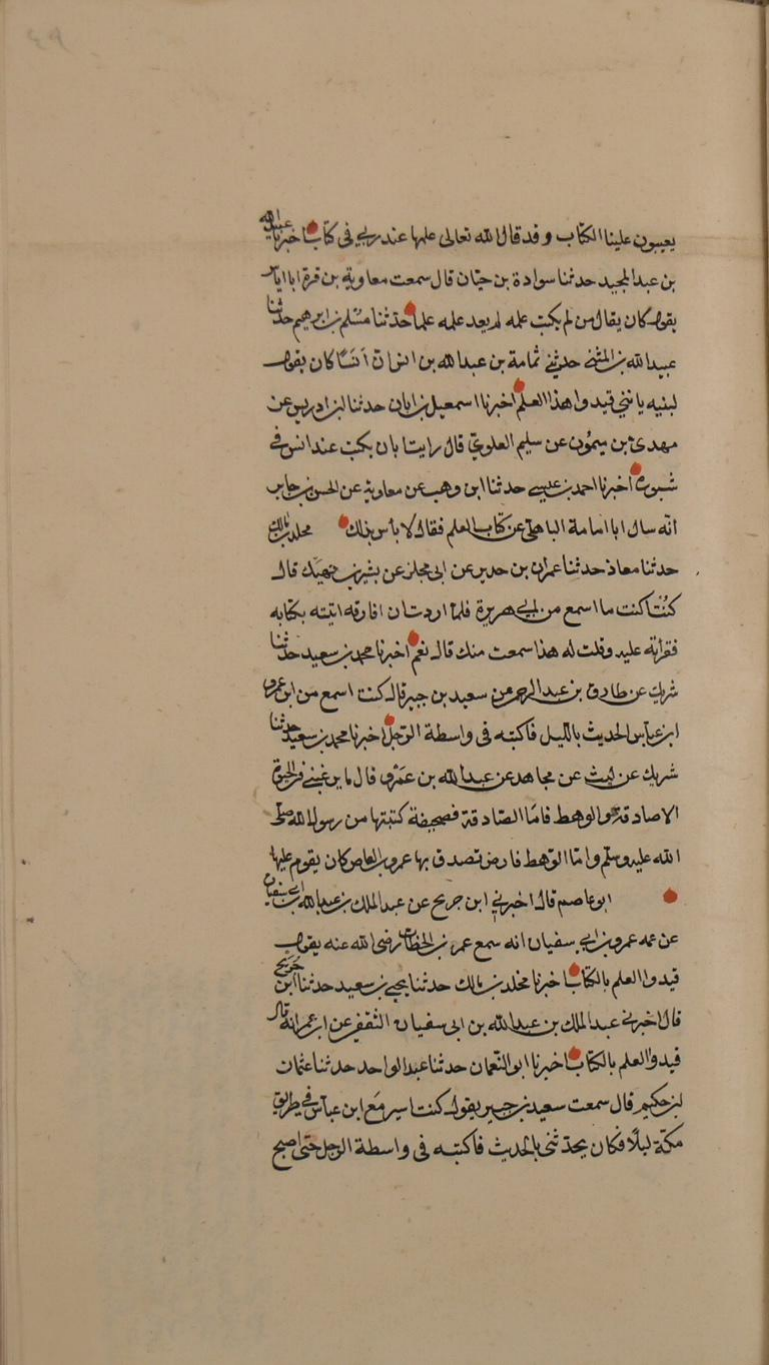 يعيبون علينا الكتاب وقد قال الله تعالى علمها عند ربي في كتاب اخبرنا عبيد الله
بن عبد المجيد حدثنا سوادة بن حيان قال سمعت معاوية بن قرة ابا اياس
يقول كان يقال من لم يكتب علمه لم يعد علمه علما حدثنا مسلم بن ابرهيم حدثنا
عبد الله بن المثنى حدثني ثمامة بن عبد الله بن انس ان أنسًا كان يقول
لبنيه يا بني قيدوا هذا العلم اخبرنا اسمعيل بن ابان حدثنا ابن ادريس عن
مهدي بن ميمون عن سليم العلوي قال رايت ابان يكتب عند انس في
سبورة اخبرنا احمد بن عيسى حدثنا ابن وهب عن معاوية عن الحسن بن جابر
انه سال ابا امامة الباهلي عن كتاب العلم فقال لا بأس بذلك مخلد بن مالك
حدثنا معاذ حدثنا عمران بن حدير عن ابي مجلز عن بشير بن نهيك قال
كنت اكتب ما اسمع من ابي هريرة فلما اردت ان افارقه اتيته بكتابه
فقرأته عليه وقلت له هذا سمعت منك قال نعم اخبرنا محمد بن سعيد حدثنا
شريك عن طارق بن عبد الرحمن عن سعيد بن جبير قال كنت اسمع من ابن عمر و
ابن عباس الحديث بالليل فاكتبه في واسطة الرحل اخبرنا محمد بن سعيد حدثنا
شريك عن ليث عن مجاهد عن عبد الله بن عمرو قال ما يرغبني في الحيوة
الا صادقة والوهط فاما الصادقة فصحيفة كتبتها من رسول الله صلى
الله عليه وسلم واما الوهط فارض تصدق بها عمرو بن العاص كان يقوم عليها
ابو عاصم قال اخبرني ابن جريج عن عبد الملك بن عبد الله بن ابي سفيان
عن عمه عمرو بن ابي سفيان انه سمع عمر بن الخطاب رضي الله عنه يقول
قيدوا العلم بالكتاب اخبرنا مخلد بن مالك حدثنا يحيى بن سعيد حدثنا ابن جريج
قال اخبرني عبد الملك بن عبد الله بن ابي سفيان الثقفي عن ابن عمر انه قال
قيدوا العلم بالكتاب اخبرنا ابو النعمان حدثنا عبد الواحد حدثنا عثمان
بن حكيم قال سمعت سعيد بن جبير يقول كنت اسير مع ابن عباس في طريق
مكة ليلًا فكان يحدثني بالحديث فاكتبه في واسطة الرحل حتى اصبح